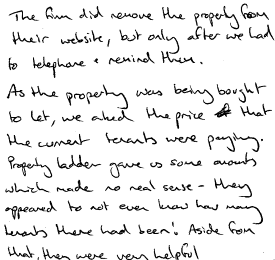 The firm did remove the property from
their website, but only after we had
to telephone & remind them.
As the property was being bought
to let, we asked the price that
the current tenants were paying.
Property ladder gave us some amounts
which made no real sense - they
appeared to not even know how many
tenants there had been! Aside from
that, they were very helpful